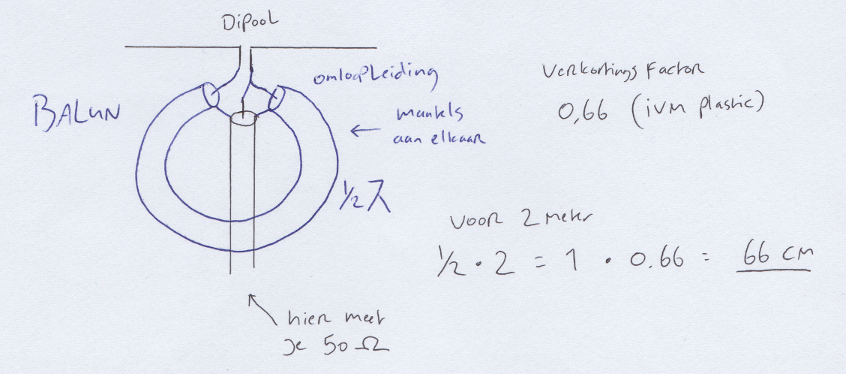 Dipool
BALUN
omloopleiding
mantels
aan elkaar
½ λ
hier meet
je 50 Ω
Verkortings Factor
0,66 (ivm plastic)
voor 2 meter
½ · 2 = 1 · 0.66 = 66 cm